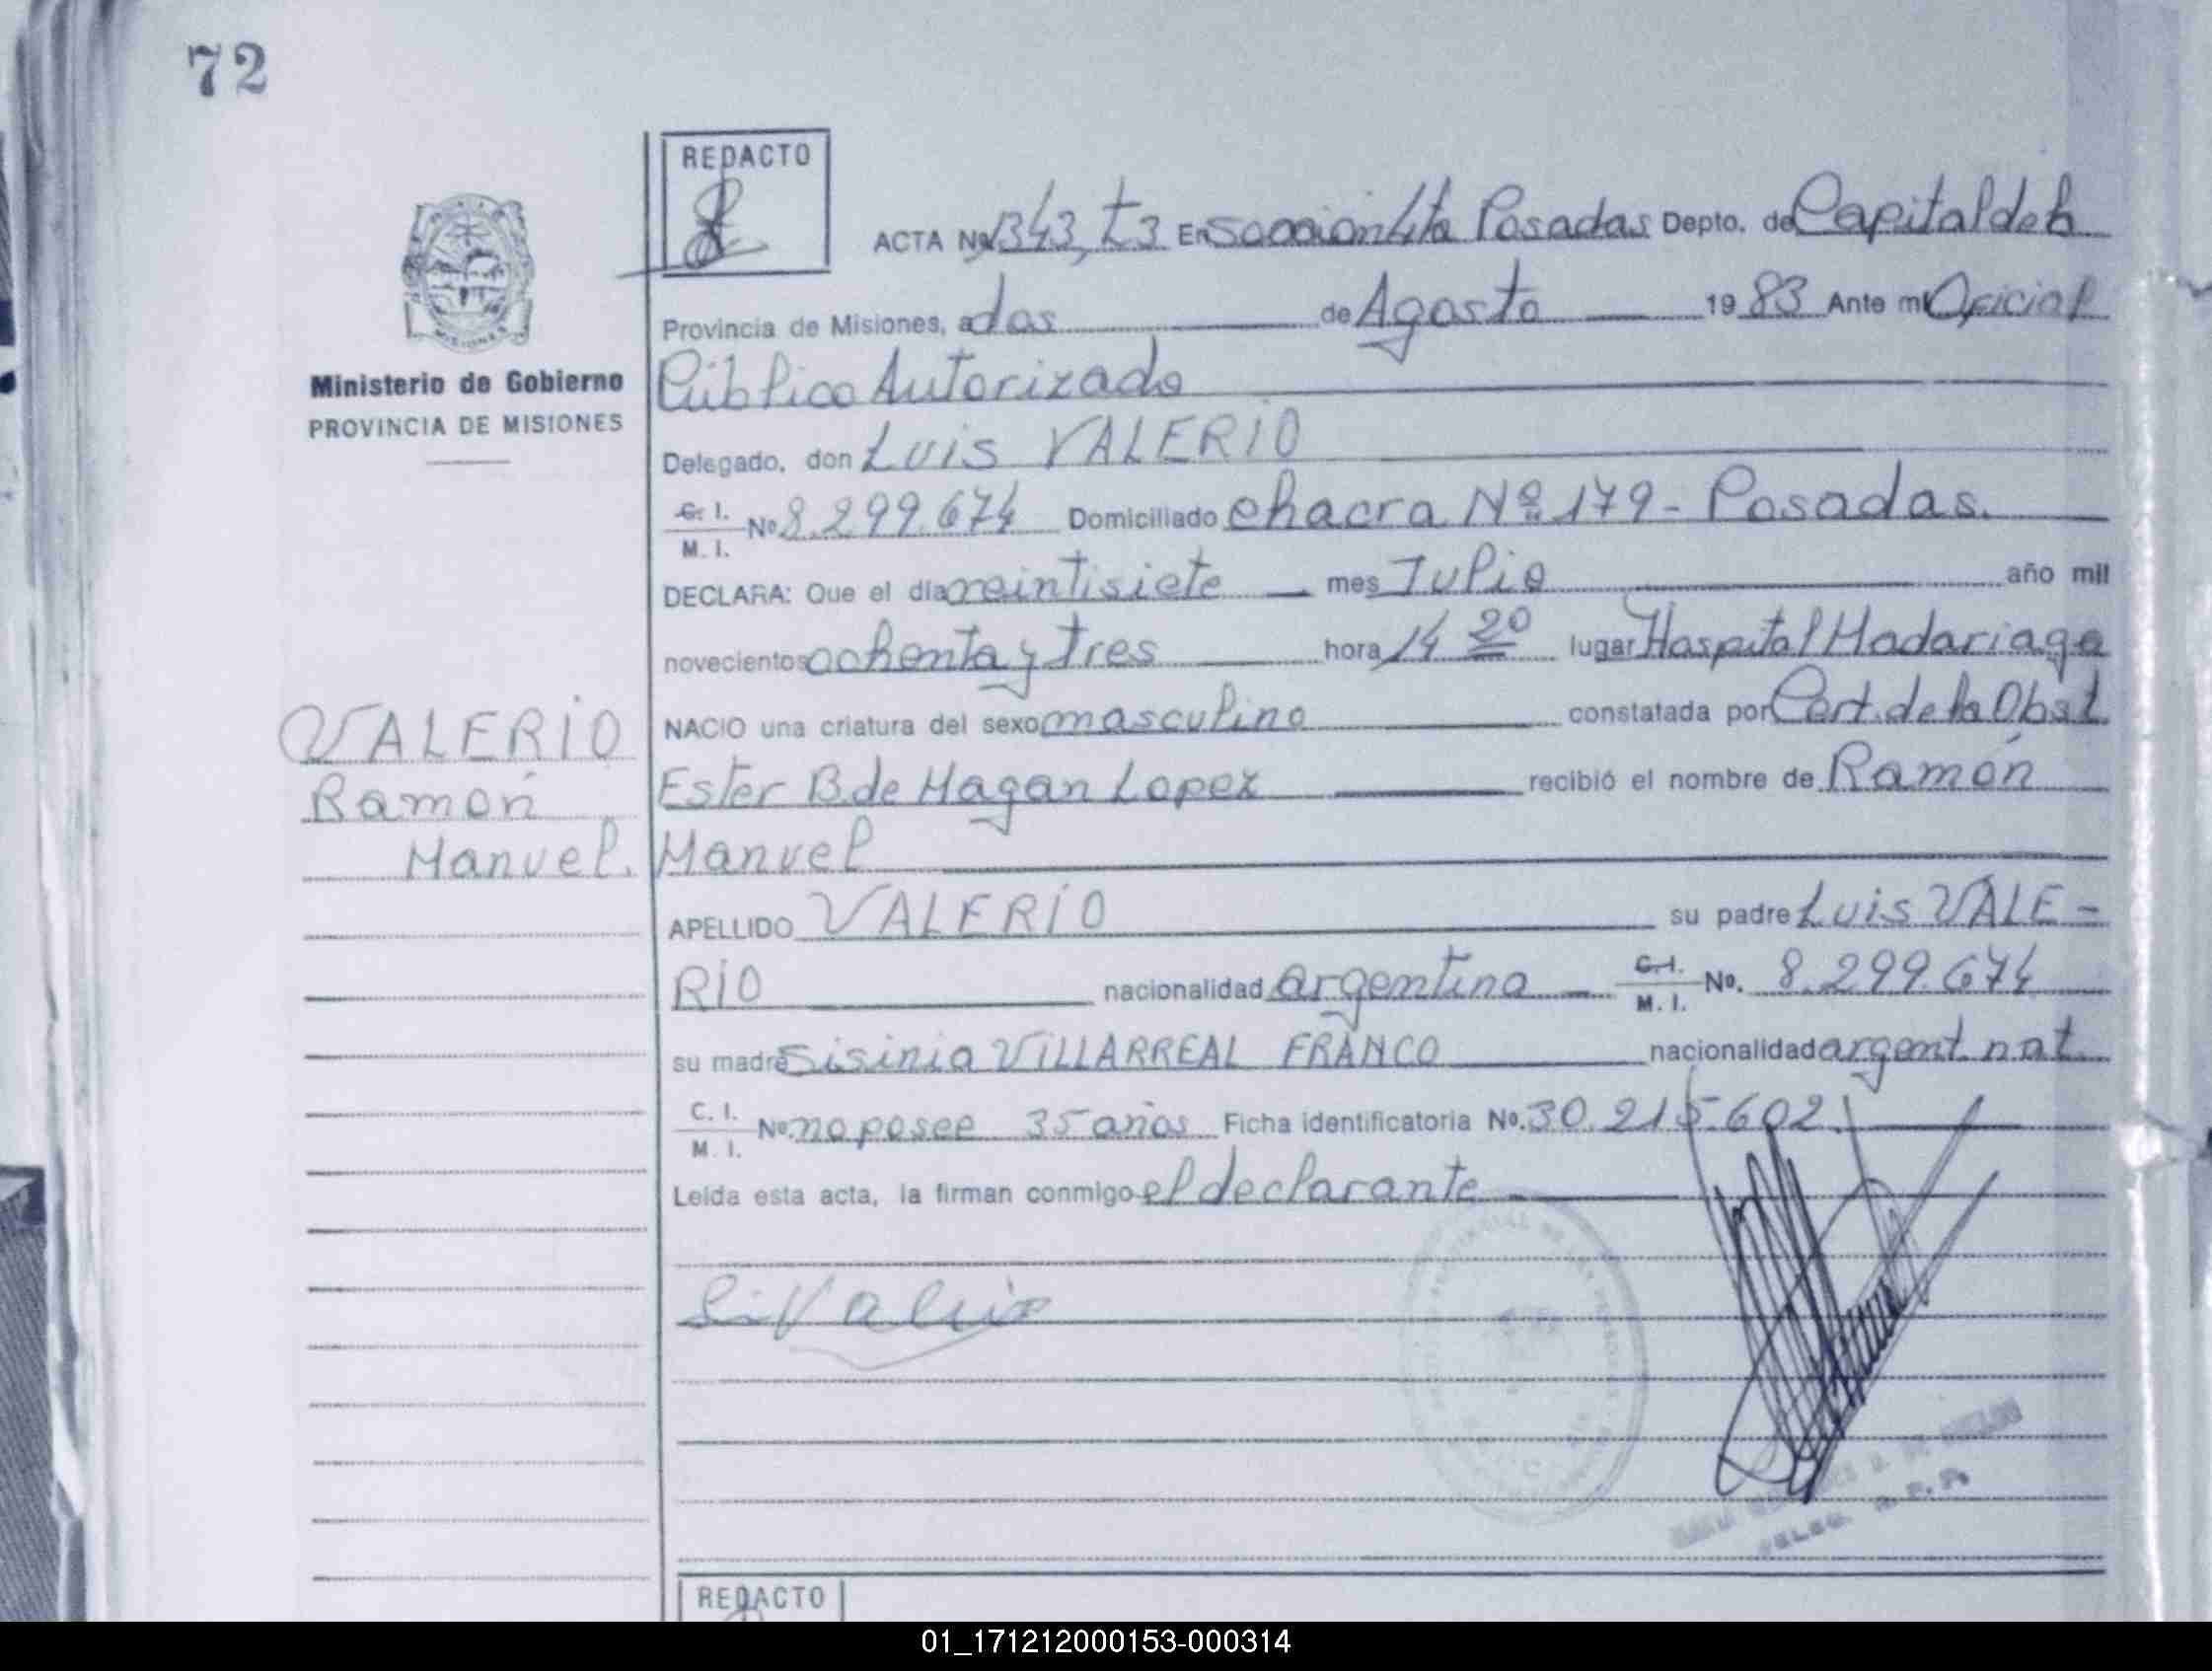 72
REDACTO
ACTA Nº 1343, t3 En Sección 4ta Posadas Depto. de Capital de la
Provincia de Misiones, a dos de Agosto 1983 Ante mi Oficial
Público Autorizado
Ministerio de Gobierno
PROVINCIA DE MISIONES
Delegado, don Luis VALERIO
C. I. M. I. Nº 8.299.674 Domiciliado chacra Nº 179 - Posadas.
DECLARA: Que el día veintisiete mes Julio año mil
novecientos ochenta y tres hora 14 20 lugar Hospital Madariaga
NACIO una criatura del sexo masculino constatada por Cert. de la Obst
Ester B. de Magan Lopez recibió el nombre de Ramón
Manuel
VALERIO
Ramón
Manuel.
APELLIDO VALERIO su padre Luis VALE-
RIO nacionalidad argentina C. I. M. I. No. 8.299.674
su madre Sisinia VILLARREAL FRANCO nacionalidad argent. nat.
C. I. M. I. Nº. no posee 35 años Ficha identificatoria No. 30.215.602.
Leída esta acta, la firman conmigo el declarante
REDACTO
01_171212000153-000314